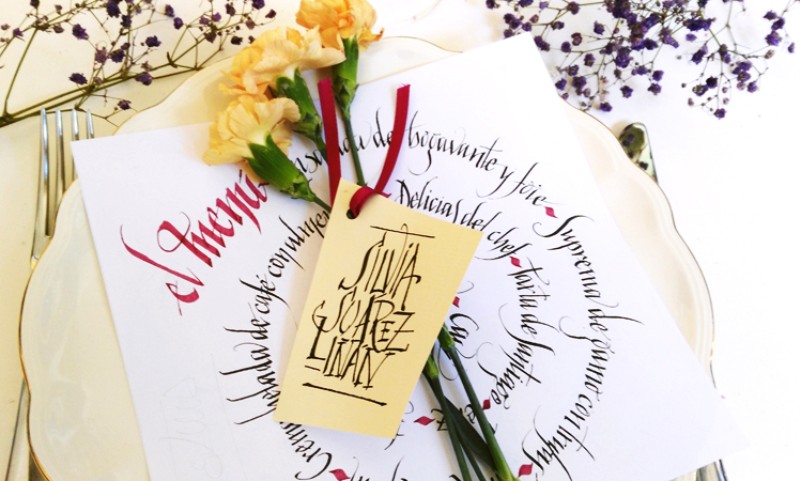 el menú
de bogavante y foie
Suprema de con trufas
Crema helada de café con
Delicias del chef
tarta de Santiago
SILVIA
SUÁREZ
LIÑÁN